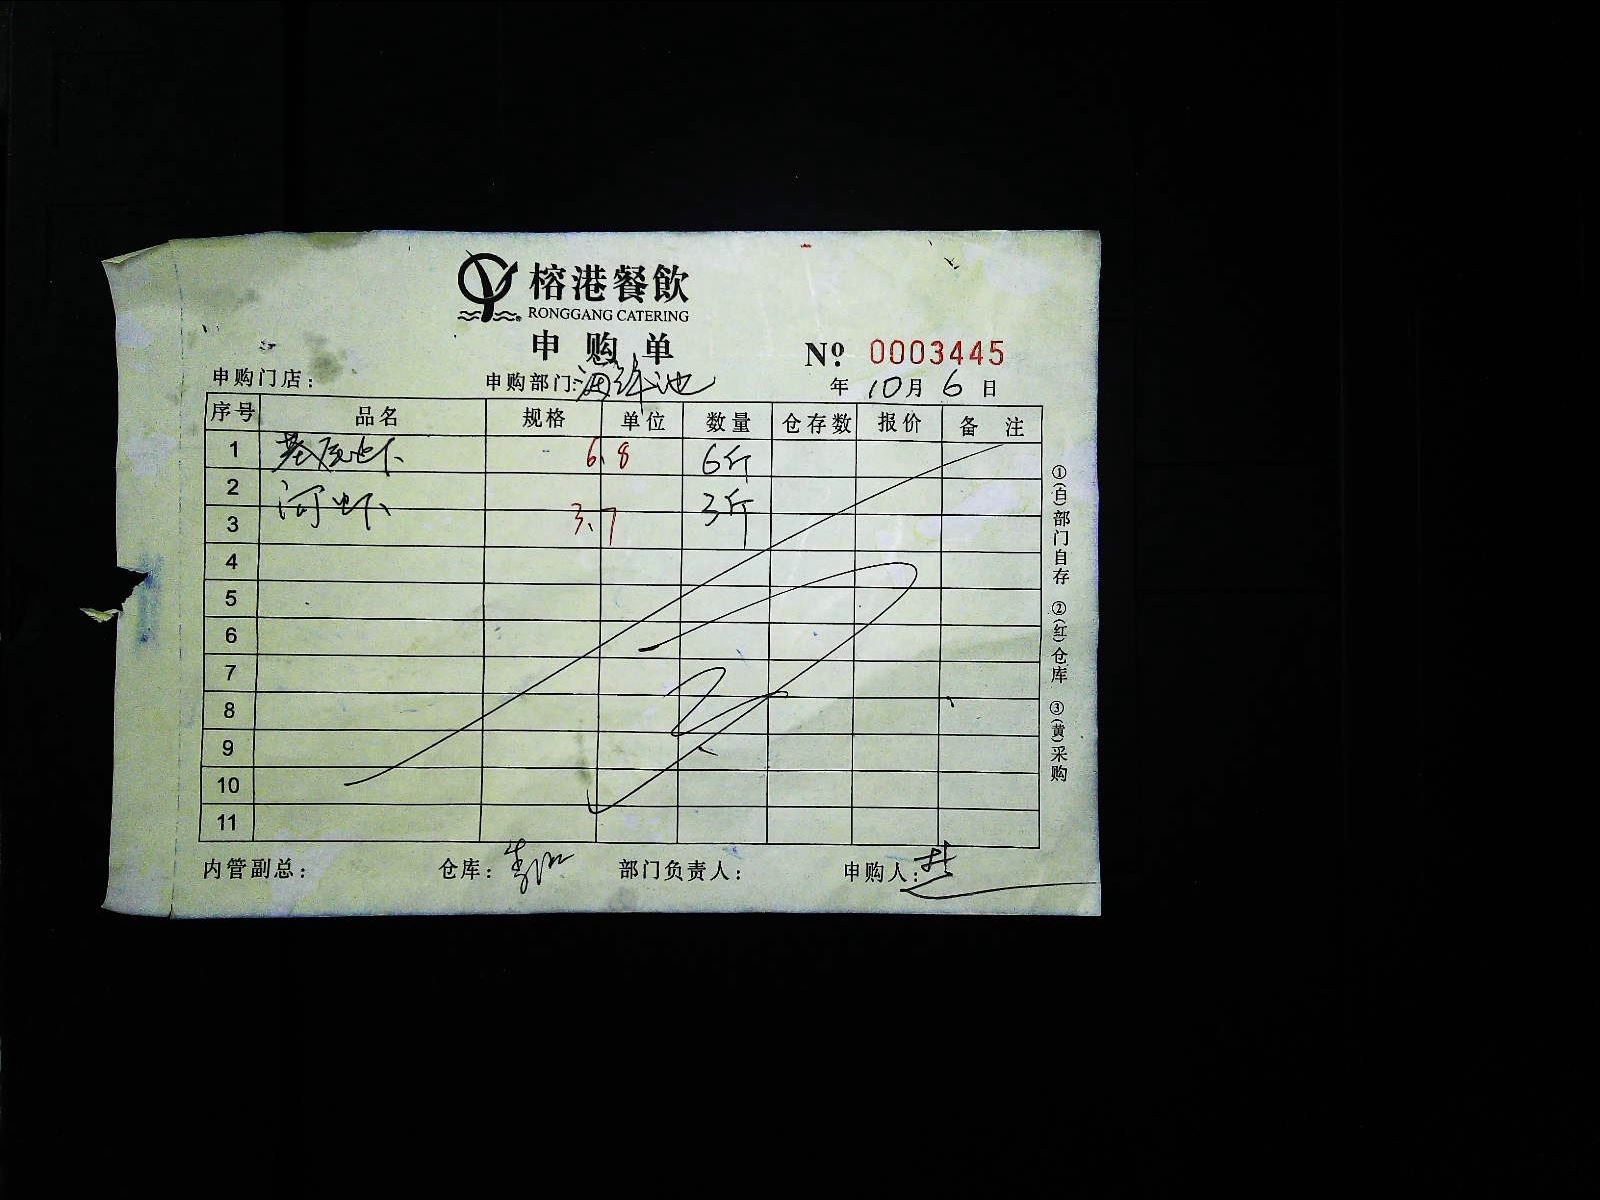 榕港餐飲
RONGGANG CATERING
申购单
№ 0003445
申购门店： 申购部门：海鲜池 年 10月 6 日
序号 品名 规格 单位 数量 仓存数 报价 备注
1 基尾虾 6.8 6斤
2 河虾 3斤
3 3.7
4
5
6
7
8
9
10
11
内管副总： 仓库： 部门负责人： 申购人：
①(白)部门自存 ②(红)仓库 ③(黄)采购